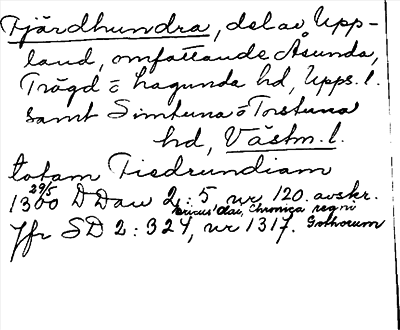 Fjärdhundra, del av Upp-
land, omfattande Åsunda,
Trögd o Lagunda hd, Upps. l.
samt Simtuna o Torstuna
hd, Västm. l.
totam Fiedrundiam
29/5
1300 DDan 2:5 nr 120. avskr.
Ericus Olai, Chronica regni
Jfr SD 2:324, nr 1317. Gothorum